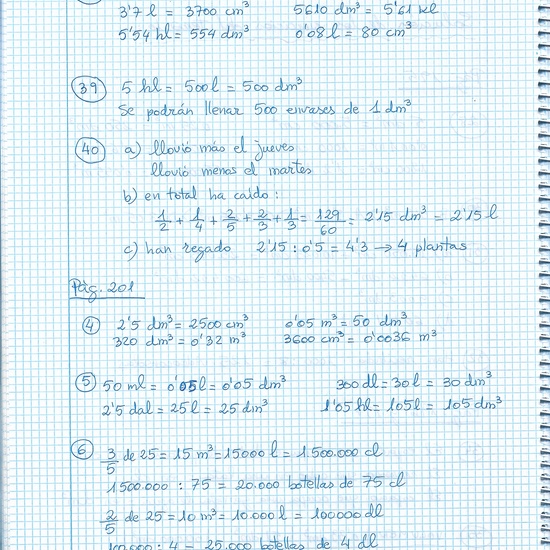 3'7 l = 3700 cm³ 5610 dm³ = 5'61 kl
5'54 hl = 554 dm³ 0'08 l = 80 cm³
39 5 hl = 500 l = 500 dm³
Se podrán llenar 500 envases de 1 dm³
40 a) llovió más el jueves
llovió menos el martes
b) en total ha caído :
1/2 + 1/4 + 2/5 + 2/3 + 1/3 = 129/60 = 2'15 dm³ = 2'15 l
c) han regado 2'15 : 0'5 = 4'3 → 4 plantas
Pág. 201
4 2'5 dm³ = 2500 cm³ 0'05 m³ = 50 dm³
320 dm³ = 0'32 m³ 3600 cm³ = 0'0036 m³
5 50 ml = 0'05 l = 0'05 dm³ 300 dl = 30 l = 30 dm³
2'5 dal = 25 l = 25 dm³ 1'05 hl = 105 l = 105 dm³
6 3/5 de 25 = 15 m³ = 15000 l = 1.500.000 cl
1500.000 : 75 = 20.000 botellas de 75 cl
2/5 de 25 = 10 m³ = 10.000 l = 100000 dl
100.000 : 4 = 25.000 botellas de 4 dl